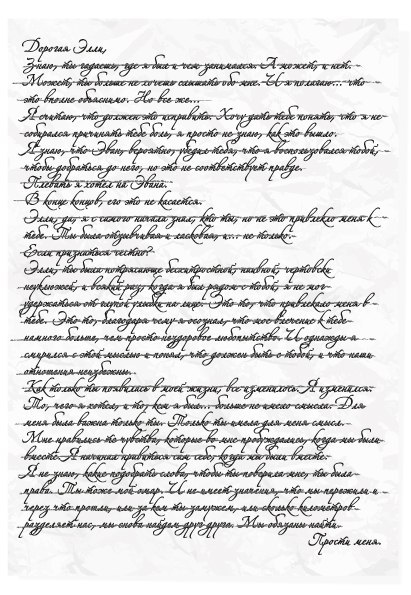 Дорогая Элли,
Знаю, ты гадаешь, где я был и чем занимался. А может, и нет.
Может, ты больше не хочешь слышать обо мне. И я полагаю... что
это вполне объяснимо. Но все же...
Я считаю, что должен это исправить. Хочу дать тебе понять, что я не
собирался причинять тебе боль, я просто не знаю, как это вышло.
Я знаю, что Эван, вероятно, убедил тебя, что я воспользовался тобой,
чтобы добраться до него, но это не соответствует правде.
Плевать я хотел на Эвана.
В конце концов, его это не касается.
Элли, да, я с самого начала знал, кто ты, но не это привлекло меня к
тебе. Ты была отзывчивая и ласковая, и... не только.
Если признаться честно?
Элли, ты была потрясающе бесхитростной, наивной, чертовски
неуклюжей, и всякий раз, когда я был рядом с тобой, я не мог
удержаться от глупой улыбки на лице. Это то, что привлекало меня в
тебе. Это то, благодаря чему я осознал, что мое влечение к тебе
намного больше, чем просто нездоровое любопытство. И однажды я
смирился с этой мыслью и понял, что должен быть с тобой, и что наши
отношения неизбежны.
Как только ты появилась в моей жизни, все изменилось. Я изменился.
То, чего я хотел, и то, кем я был... больше не имело смысла. Для
меня была важна только ты. Только ты имела для меня смысл.
Мне нравились те чувства, которые во мне пробуждались, когда мы были
вместе. Я начинал нравиться сам себе, когда мы были вместе.
Я не знаю, какие подобрать слова, чтобы ты поверила мне, ты была
права. Ты тоже мой якорь. И не имеет значения, что мы пережили и
через что прошли, или за кем ты замужем, или сколько километров
разделяет нас, мы снова найдем друг друга. Мы обязаны найти.
Прости меня.